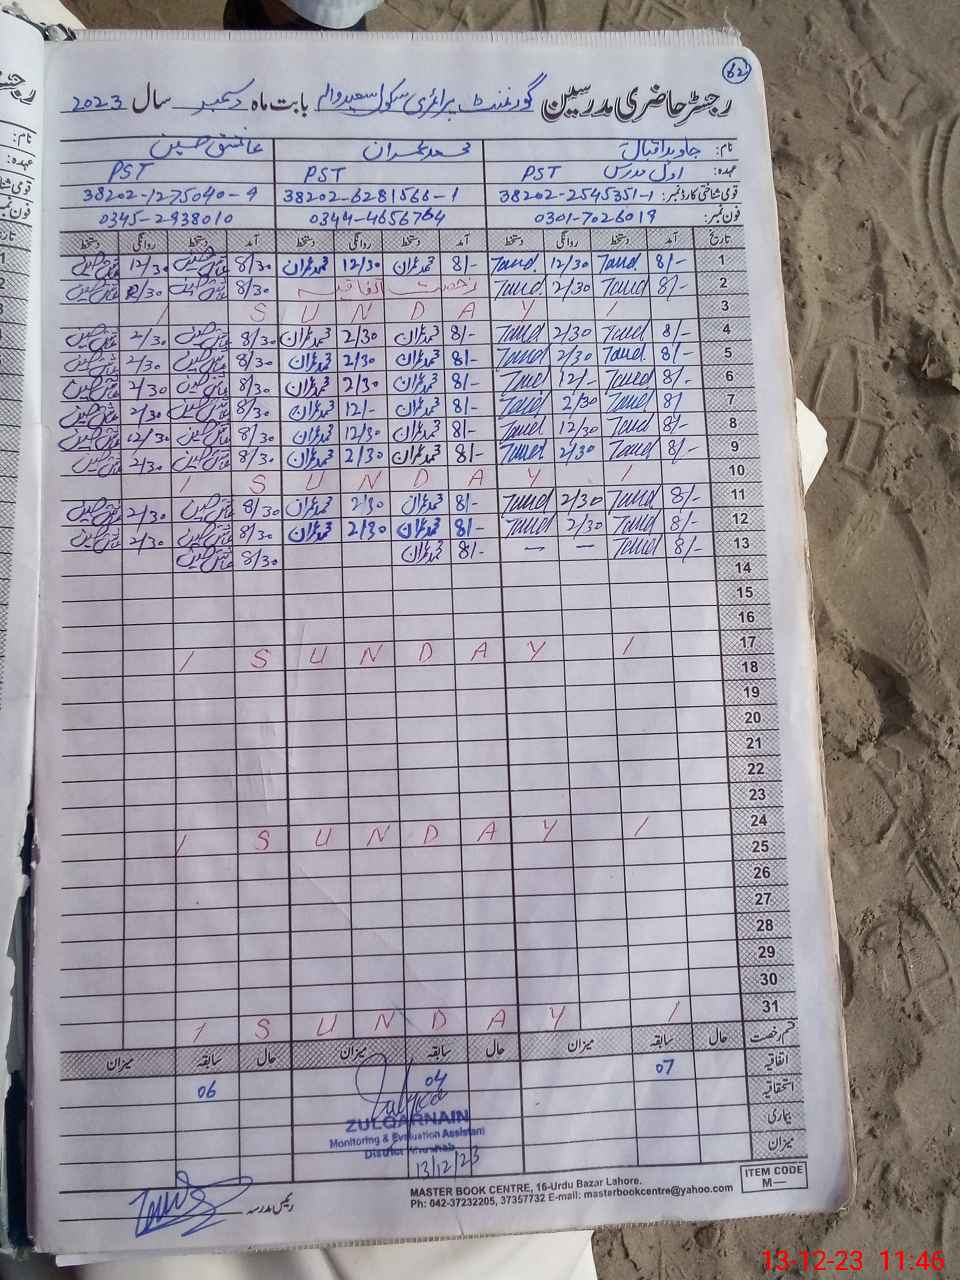 62
رجسٹر حاضری مدرسین گورنمنٹ پرائمری سکول سعیدوالہ بابت ماہ دسمبر سال 2023
نام: جاوید اقبال محمد عمران عاشق حسین
عہدہ: اول مدرس PST PST PST
قومی شناختی کارڈ نمبر: 38202-2545351-1 38202-6281566-1 38202-1275040-9
فون نمبر: 0301-7026019 0344-4656764 0345-2938010
تاریخ آمد دستخط روانگی دستخط آمد دستخط روانگی دستخط آمد دستخط روانگی دستخط
1 8/- 12/30 8/- محمد عمران 12/30 محمد عمران 8/30 عاشق حسین 12/30 عاشق حسین
2 8/- 2/30 رخصت اتفاقیہ 8/30 عاشق حسین 2/30 عاشق حسین
3 / S U N D A Y /
4 8/- 2/30 8/- محمد عمران 2/30 محمد عمران 8/30 عاشق حسین 2/30 عاشق حسین
5 8/- 2/30 8/- محمد عمران 2/30 محمد عمران 8/30 عاشق حسین 2/30 عاشق حسین
6 8/- 12/- 8/- محمد عمران 2/30 محمد عمران 8/30 عاشق حسین 2/30 عاشق حسین
7 8/ 2/30 8/- محمد عمران 12/- محمد عمران 8/30 عاشق حسین 2/30 عاشق حسین
8 8/- 12/30 8/- محمد عمران 12/30 محمد عمران 8/30 عاشق حسین 12/30 عاشق حسین
9 8/- 2/30 8/- محمد عمران 2/30 محمد عمران 8/30 عاشق حسین 2/30 عاشق حسین
10 / S U N D A Y /
11 8/- 2/30 8/- محمد عمران 2/30 محمد عمران 8/30 عاشق حسین 2/30 عاشق حسین
12 8/- 2/30 8/- محمد عمران 2/30 محمد عمران 8/30 عاشق حسین 2/30 عاشق حسین
13 8/- — — 8/- محمد عمران 8/30 عاشق حسین
14
15
16
17 / S U N D A Y /
18
19
20
21
22
23
24 / S U N D A Y /
25
26
27
28
29
30
31 / S U N D A Y /
قسم رخصت حال سابقہ میزان حال سابقہ میزان حال سابقہ میزان
اتفاقیہ 07 04 06
استحقاقیہ
بیماری
میزان
ZULQARNAIN
Monitoring & Evaluation Assistant
District Khushab
13/12/23
رئیس مدرسہ
MASTER BOOK CENTRE, 16-Urdu Bazar Lahore.
Ph: 042-37232205, 37357732 E-mail: masterbookcentre@yahoo.com
ITEM CODE
M—
13-12-23 11:46